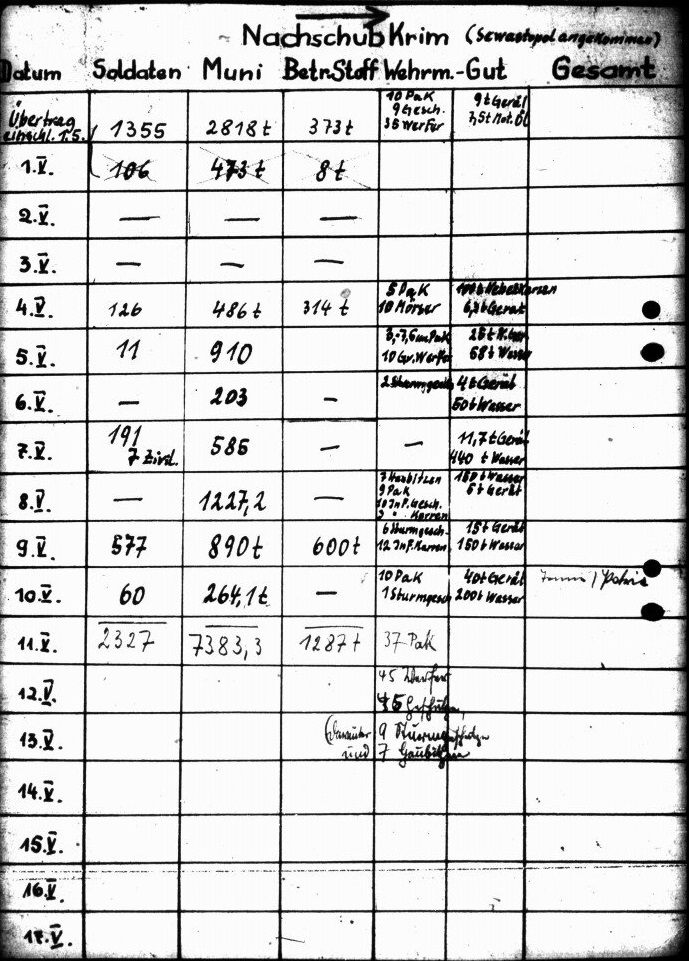 Nachschub Krim (Sewastopol angekommen)
Datum Soldaten Muni Betr.Stoff Wehrm.-Gut Gesamt
Übertrag einschl. 1.5. 1355 2818 t 373 t 10 Pak 9 t Gerät
9 Gesch. 7,5 t Mot. Öl
36 Werfer
1.V. 106 473 t 8 t
2.V. — — —
3.V. — — —
4.V. 126 486 t 314 t 5 Pak
10 Mörser Gerät
5.V. 11 910 Pak
10 Gr. Werfer 68 t Wasser
6.V. — 203 — 2 Sturmgesch. 4 t Gerät
50 t Wasser
7.V. 191 586 — — 11,7 t Gerät
7 Zivil. 440 t Wasser
8.V. — 1227,2 — 3 Haubitzen 180 t Wasser
9 Pak 6 t Gerät
10 Inf. Gesch.
2 " Karren
9.V. 577 890 t 600 t 6 Sturmgesch. 15 t Gerät
12 Inf. Karren 150 t Wasser
10.V. 60 264,1 t — 10 Pak 40 t Gerät
1 Sturmgesch 200 t Wasser
11.V. 2327 7383,3 1287 t 37 Pak
12.V. 45 Werfer
45 Geschütze,
13.V. (darunter 9 Sturmgeschütze
und 7 Haubitzen
14.V.
15.V.
16.V.
17.V.